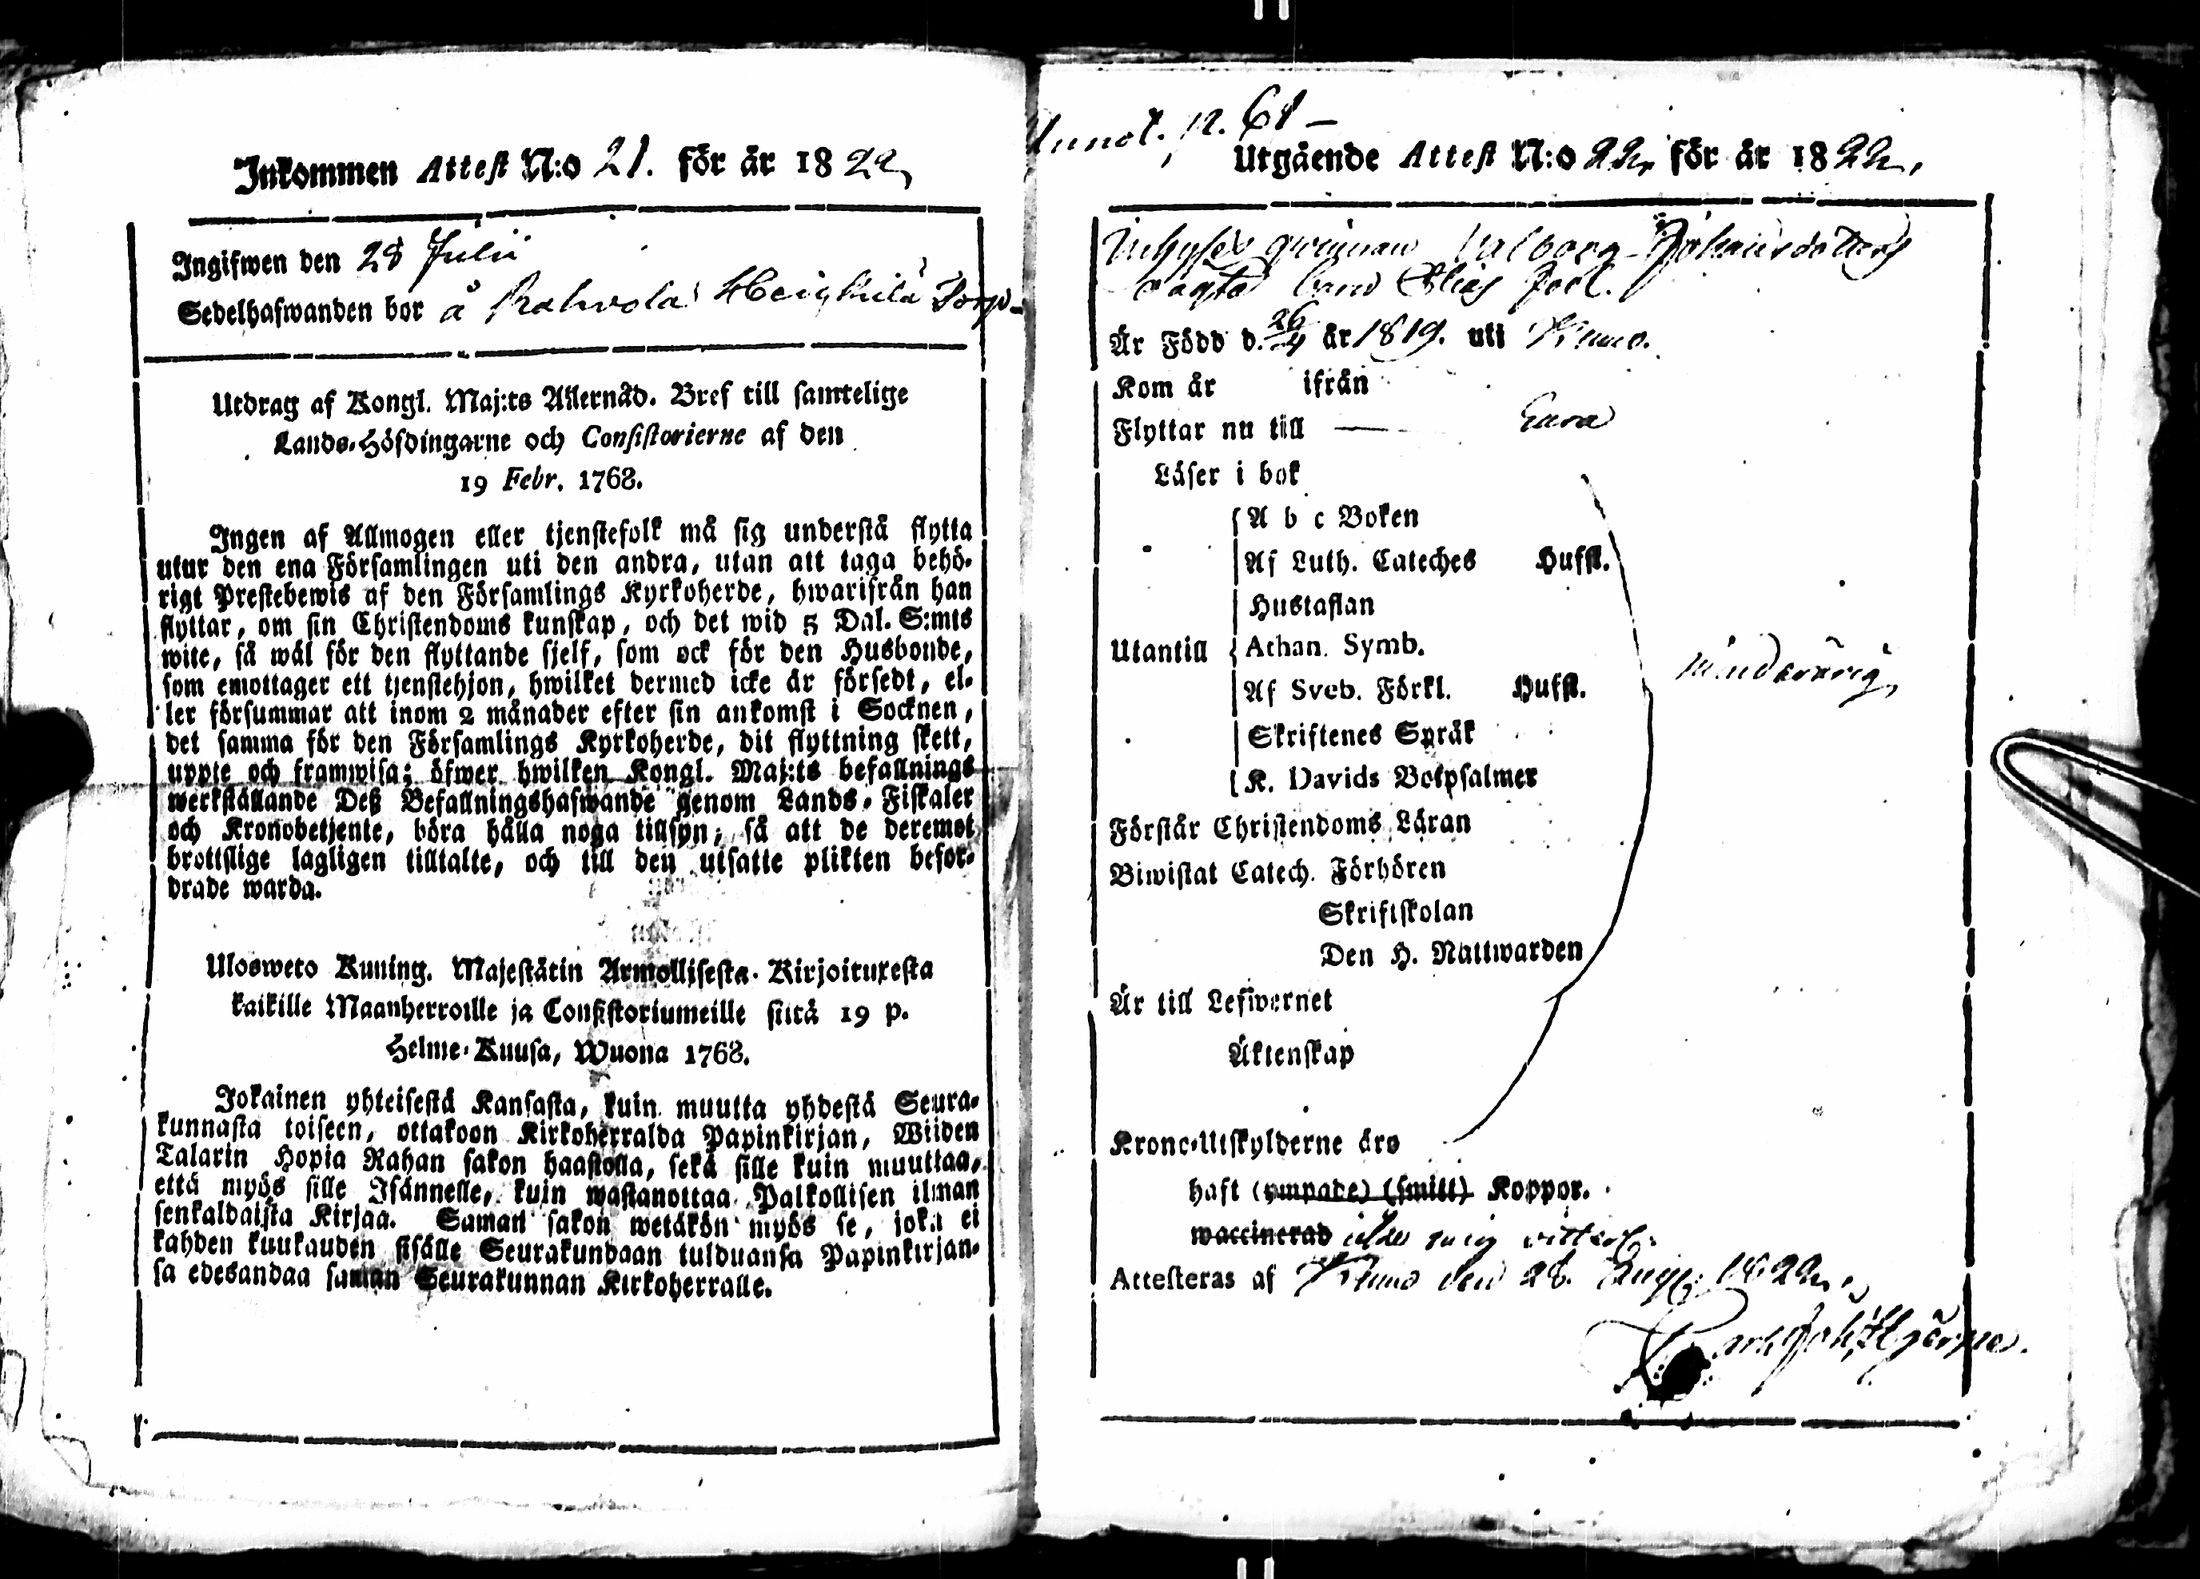 Inkommen Attest N:o 21. för år 1822,
Ingifwen den 28 Julii
Sedelhafwanden bor å Kahvola Heickilä Torp
Utdrag af Kongl. Maj:ts Allernåd. Bref till samtelige
Lands-Höfdingarne och Consistorierne af den
19 Febr. 1768.
Ingen af Allmogen eller tjenstefolk må sig understå flytta
utur den ena Församlingen uti den andra, utan att taga behö-
rigt Prestebewis af den Församlings Kyrkoherde, hwarifrån han
flyttar, om sin Christendoms kunskap, och det wid 5 Dal. S:mts
wite, så wäl för den flyttande sjelf, som ock för den Husbonde,
som emottager ett tjenstehjon, hwilket dermed icke är försedt, el-
ler försummar att inom 2 månader efter sin ankomst i Socknen,
det samma för den Församlings Kyrkoherde, dit flyttning skett,
uppte och framwisa; öfwer hwilken Kongl. Maj:ts befallnings
werkställande Deß Befallningshafwande genom Lands-Fiskaler
och Kronobetjente, böra hålla noga tillsyn; så att de deremot
brottslige lagligen tilltalte, och till den utsatte plikten befor-
drade warda.
Ulosweto Kuning. Majestätin Armollisesta Kirjoituxesta
kaikille Maanherroille ja Consistoriumeille siitä 19 p.
Helme-Kuusa, Wuona 1768.
Jokainen yhteisestä Kansasta, kuin muutta yhdestä Seura-
kunnasta toiseen, ottakoon Kirkoherralda Papinkirjan, Wiiden
Talarin Hopia Rahan sakon haastolla, sekä sille kuin muuttaa,
että myös sille Isännelle, kuin wastanottaa Palkollisen ilman
senkaldaista Kirjaa. Saman sakon wetäkön myös se, joka ei
kahden kuukauden sisälle Seurakundaan tulduansa Papinkirjan-
sa edesandaa saman Seurakunnan Kirkoherralle.
p. 61
Utgående Attest N:o 22, för år 1822,
Inhyses qvinnan Valborg Johansdotters
oägta barn Elias Joel.
Är Född d. 26/4 år 1819. uti Kumo.
Kom år ifrån
Flyttar nu till — Eura
Läser i bok
A b c Boken
Af Luth. Cateches Hufst.
Hustaflan
Utantill Athan. Symb.
Af Sveb. Förkl. Hufst.
Skriftenes Språk
K. Davids Botpsalmer
minderårig,
Förstår Christendoms Läran
Biwistat Catech. Förhören
Skriftskolan
Den H. Nattwarden
Är till Lefwernet
Äktenskap
Krono-Utskylderne äro
haft (ympade) (smitt) Koppor.
waccinerad
Attesteras af Kumo den 28. Aug: 1822,